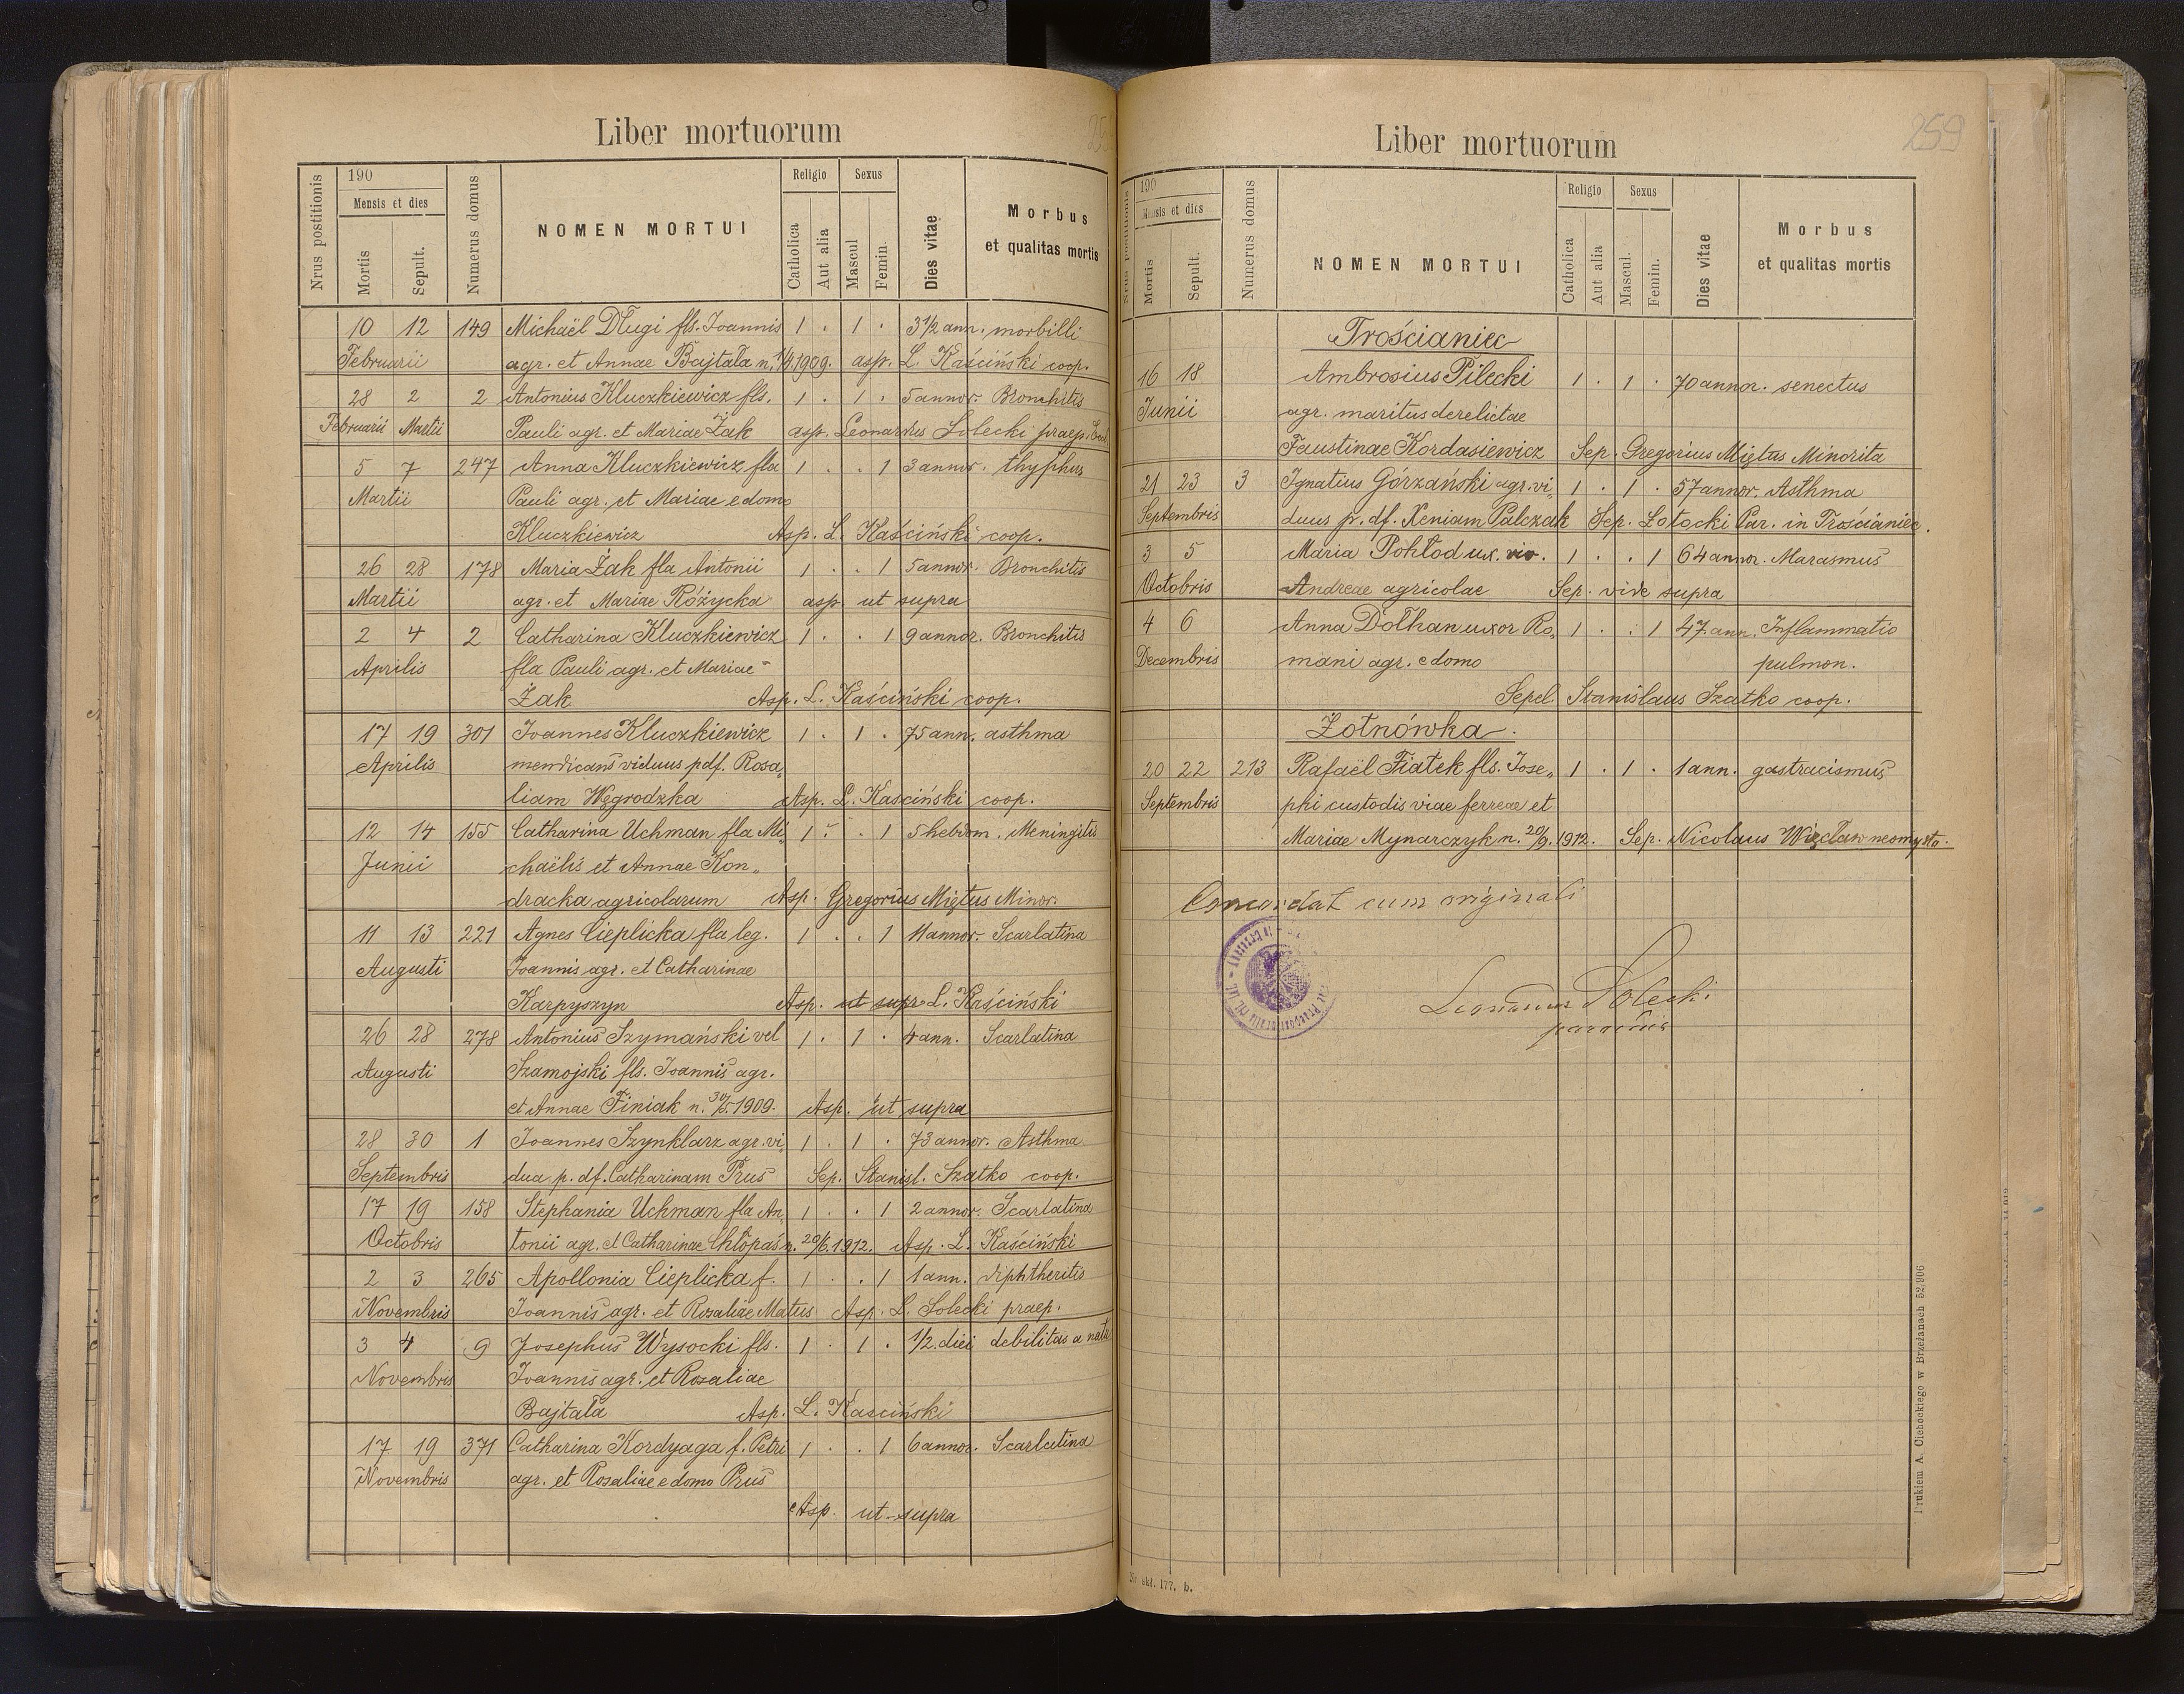 Liber mortuorum
Nrus postitionis
190
Mensis et dies
Mortis
Sepult.
Numerus domus
NOMEN MORTUI
Religio
Catholica
Aut alia
Sexus
Mascul
Femin.
Dies vitae
Morbus
et qualitas mortis
10 12 149 Michaël Długi fls. Joannis 1 . 1 . 3 1/2 ann. morbilli
Februarii agr. et Annae Bajtala n. 1909. asp. L. Kaściński coop.
28 2 2 Antonius Kluczkiewicz fls. 1 . 1 . 5 annor. Bronchitis
Februarii Martii Pauli agr. et Mariae Żak asp. Leonardus Solecki praep.
5 7 247 Anna Kluczkiewicz fla 1 . . 1 3 annor. thyphus
Martii Pauli agr. et Mariae e domo
Kluczkiewicz Asp. L. Kaściński coop.
26 28 178 Maria Żak fla Antonii 1 . . 1 5 annor. Bronchitis
Martii agr. et Mariae Różycka asp. ut supra
2 4 2 Catharina Kluczkiewicz 1 . . 1 9 annor. Bronchitis
Aprilis fla Pauli agr. et Mariae
Żak Asp. L. Kaściński coop.
17 19 301 Joannes Kluczkiewicz 1 . 1 . 75 ann. asthma
Aprilis mendicans viduus p df. Rosa„
liam Węgrodzka Asp. L. Kaściński coop.
12 14 155 Catharina Uchman fla Mi„ 1 . . 1 5 hebdom. Meningitis
Junii chaëlis et Annae Kon„
dracka agricolarum Asp. Gregorius Miętus Minor.
11 13 221 Agnes Cieplicka fla leg. 1 . . 1 11 annor. Scarlatina
Augusti Joannis agr. et Catharinae
Karpyszyn Asp. ut supr L. Kaściński
26 28 278 Antonius Szymański vel 1 . 1 . 4 ann. Scarlatina
Augusti Szamojski fls. Joannis agr.
et Annae Finiak n. 30/5. 1909. Asp. ut supra
28 30 1 Joannes Szynklarz agr. vi„ 1 . 1 . 73 annor. Asthma
Septembris dua p. df. Catharinam Prus Sep. Stanisl. Szatko coop.
17 19 158 Stephania Uchman fla An„ 1 . . 1 2 annor. Scarlatina
Octobris tonii agr. et Catharinae Chłopaś n. 20/6. 1912. Asp. L. Kaściński
2 3 265 Apollonia Cieplicka f. 1 . . 1 1 ann. diphtheritis
Novembris Joannis agr. et Rozaliae Matus Asp. L. Solecki praep.
3 4 9 Josephus Wysocki fls. 1 . 1 . 1/2. diei debilitas a natu
Novembris Joannis agr. et Rozaliae
Bajtala Asp. L. Kaściński
17 19 371 Catharina Kordyaga f. Petri 1 . . 1 6 annor. Scarlatina
Novembris agr. et Rozaliae e domo Prus
Asp. ut supra
259
Liber mortuorum
Nrus postitionis
190
Mensis et dies
Mortis
Sepult.
Numerus domus
NOMEN MORTUI
Religio
Catholica
Aut alia
Sexus
Mascul.
Femin.
Dies vitae
Morbus
et qualitas mortis
Trościaniec
16 18 Ambrosius Pilecki 1 . 1 . 70 annor. senectus
Junii agr. maritus derelictae
Faustinae Kordasiewicz Sep. Gregorius Miętus Minorita
21 23 3 Ignatius Górzański agr. vi„ 1 . 1 . 57 annor. Asthma
Septembris duus p. df. Xeniam Palczak Sep. Łotocki Par. in Trościaniec.
3 5 Maria Pohłod ux. 1 . . 1 64 annor. Marasmus
Octobris Andreae agricolae Sep. vide supra
4 6 Anna Dołhan uxor Ro„ 1 . . 1 47 ann. Inflammatio
Decembris mani agr. e domo pulmon.
Sepel. Stanislaus Szatko coop.
Żotnówka.
20 22 213 Rafaël Fiatek fls. Jose„ 1 . 1 . 1 ann. gastracismus
Septembris phi custodis viae ferreae et
Mariae Mynarczyk n. 20/9. 1912. Sep. Nicolaus Więcław neomysta.
Concordat cum originali
Leonardus Solecki
parochus
Nr. skł. 177. b.
Drukiem A. Ciehockiego w Brzeżanach 52/906